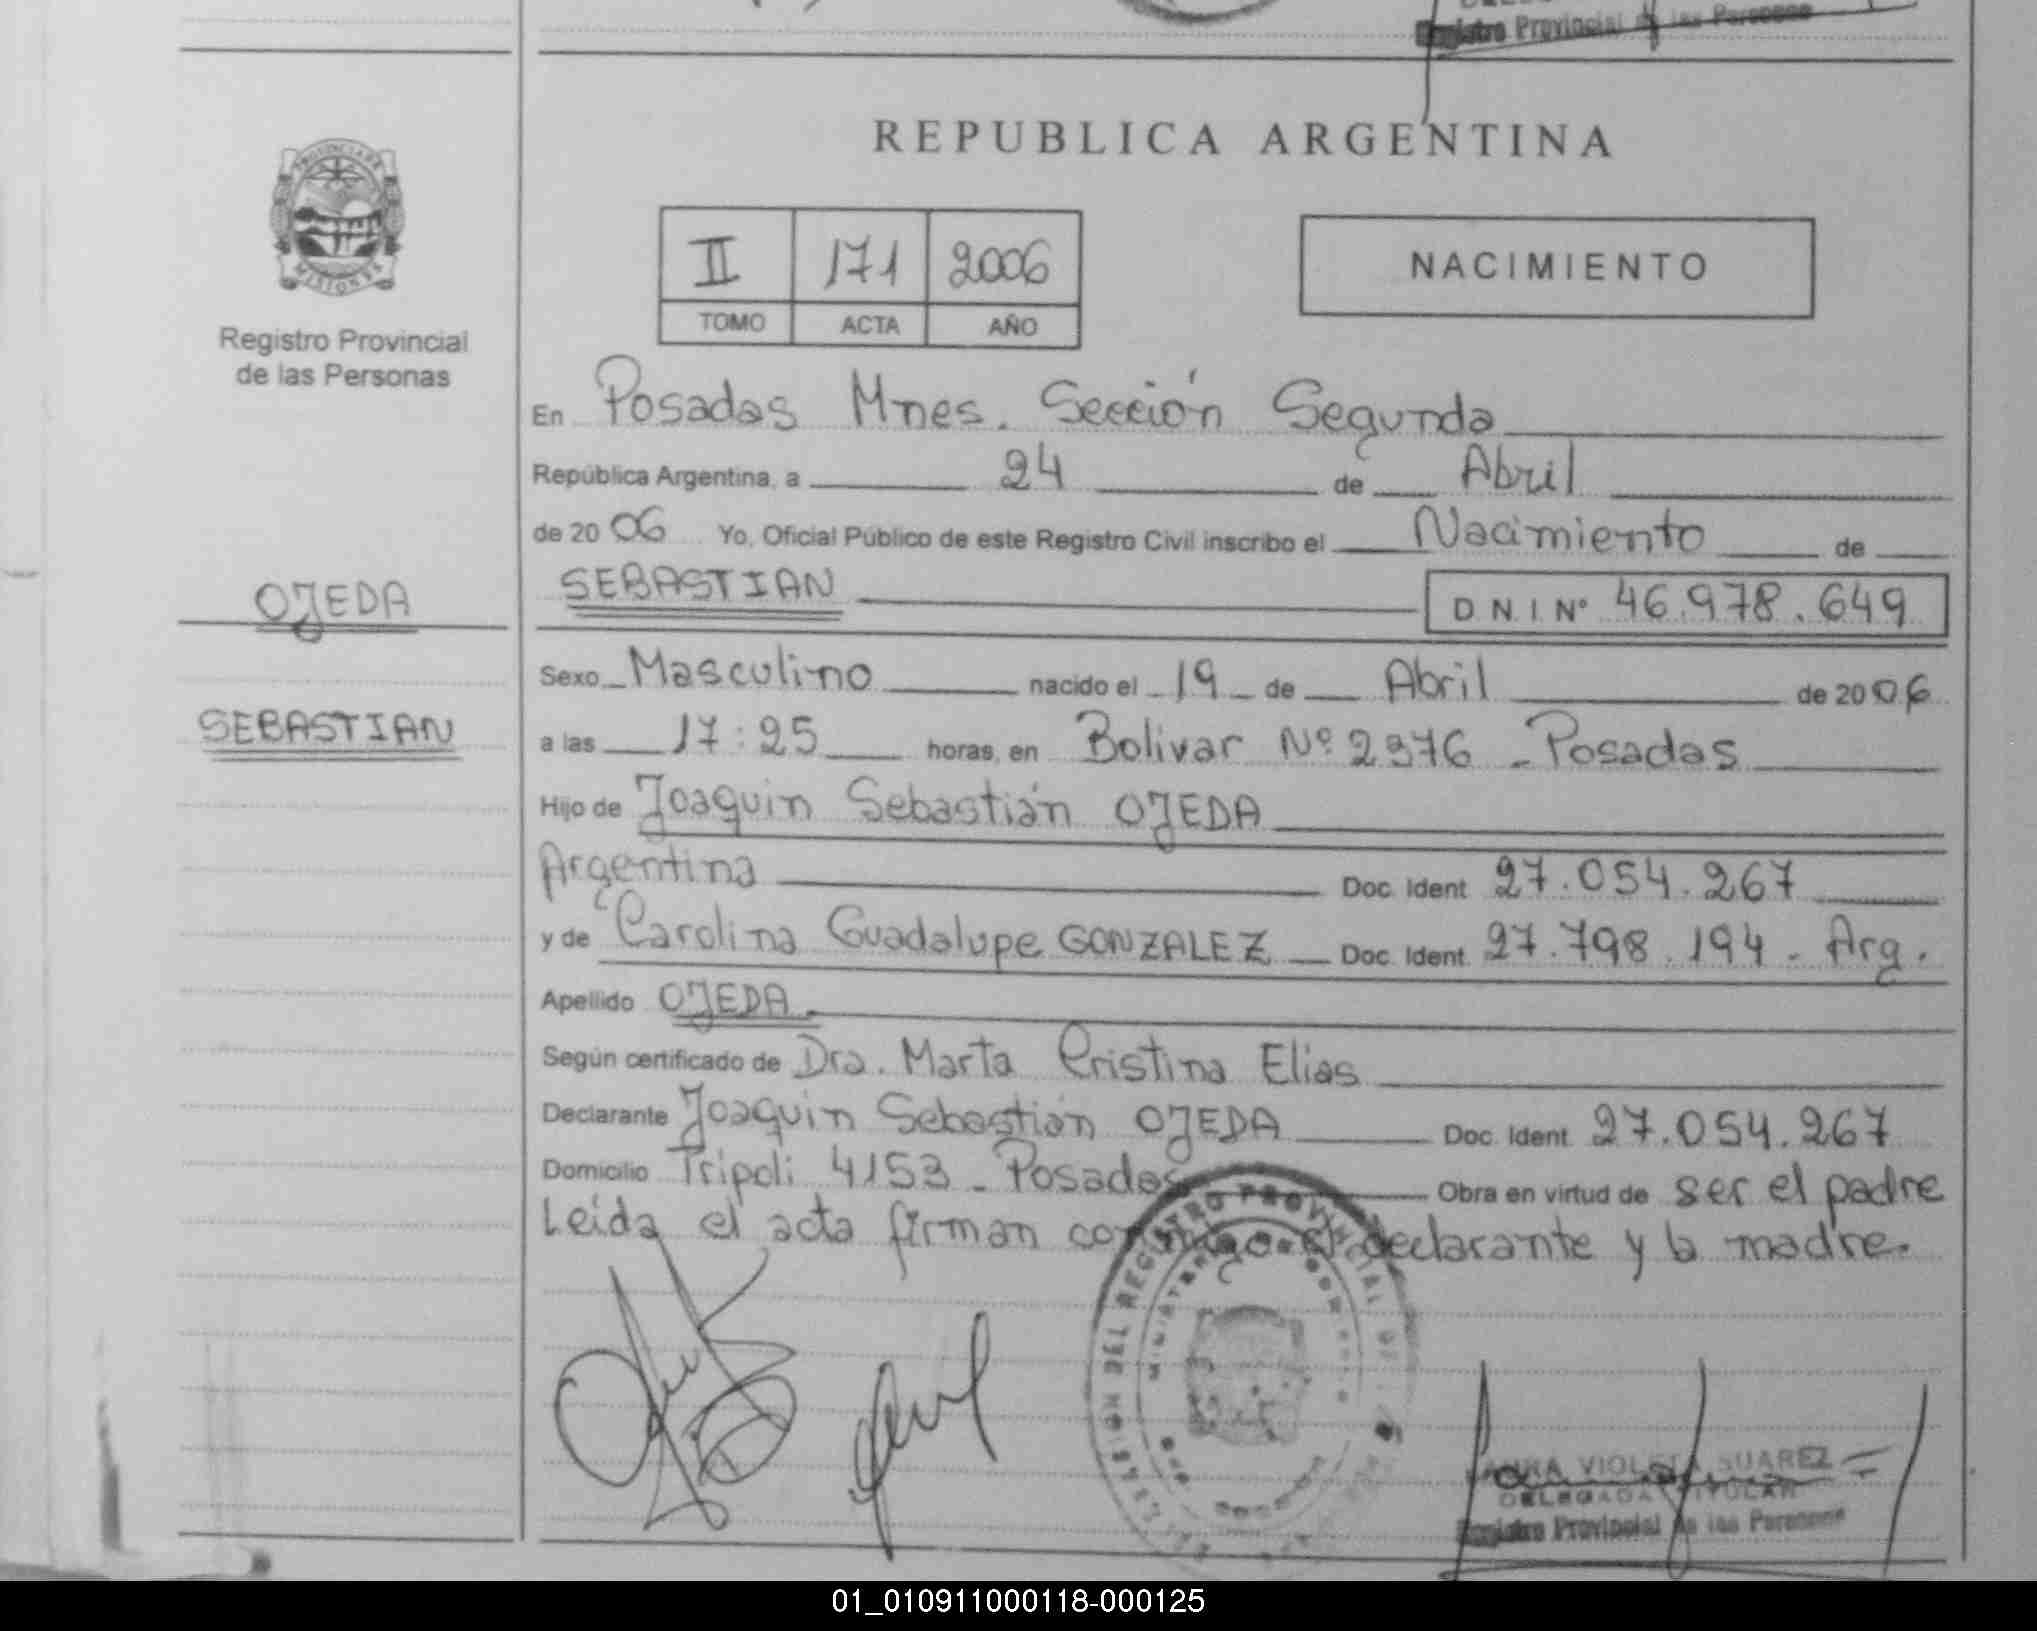 Registro Provincial de las Personas
REPUBLICA ARGENTINA
II 171 2006
TOMO ACTA AÑO
NACIMIENTO
PROVINCIA DE
MISIONES
Registro Provincial
de las Personas
En Posadas Mnes. Sección Segunda
República Argentina, a 24 de Abril
de 2006 Yo, Oficial Público de este Registro Civil inscribo el Nacimiento de
OJEDA
SEBASTIAN
SEBASTIAN D.N.I. Nº 46.978.649
Sexo Masculino nacido el 19 de Abril de 2006
a las 17:25 horas, en Bolivar Nº 2376 - Posadas
Hijo de Joaquin Sebastián OJEDA
Argentina Doc. Ident. 27.054.267
y de Carolina Guadalupe GONZALEZ Doc. Ident. 27.798.194 - Arg.
Apellido OJEDA
Según certificado de Dra. Marta Cristina Elias
Declarante Joaquin Sebastián OJEDA Doc. Ident. 27.054.267
Domicilio Tripoli 4153 - Posadas Obra en virtud de ser el padre
Leida el acta firman conmigo el declarante y la madre.
DEL REGISTRO PROVINCIAL DE
VIOLETA SUAREZ
DELEGADA TITULAR
Registro Provincial de las Personas
01_010911000118-000125